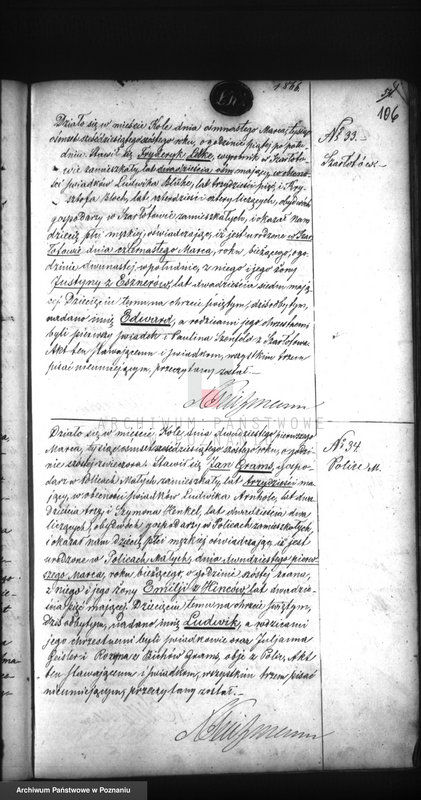 1866.
106
Działo się w mieście Kole dnia ósmnastego Marca, tysiąc
ośmset sześćdziesiątego szóstego roku, o godzinie piątej po połu-
dniu. Stawił się Fryderyk Litke, wyrobnik w Karłoto-
wie zamieszkały, lat dwadzieścia ośm mający, w obecno-
ści świadków Ludwika lat trzydzieści pięć, i Kry-
sztofa Bloch, lat czterdzieści cztery liczących, obydwóch
gospodarzy w zamieszkałych, i okazał nam
dziecię płci męzkiej, oświadczając, iż jest urodzone w
dnia czternastego Marca, roku bieżącego, o go-
dzinie dwunastej w południe, z niego i jego żony
Justyny z lat dwadzieścia siedm mają-
cej. Dziecięciu temu na chrzcie świętym, dziś odbytym,
nadano imię Edward, a rodzicami jego chrzestnemi
byli pierwszy świadek i Paulina z
Akt ten stawającemu i świadkom, wszystkim trzem
pisać nieumiejącym, przeczytany został.—
No 33.
Działo się w mieście Kole, dnia dwudziestego pierwszego
Marca, tysiąc ośmset sześćdziesiątego szóstego roku, o godzi-
nie szóstej z wieczora. Stawił się Jan Grams, gospo-
darz w Policach Małych zamieszkały, lat trzydzieści ma-
jący, w obecności świadków Ludwika lat dwa-
dzieścia trzy, i Szymona Henkel, lat dwadzieścia dwa
liczących, obydwóch gospodarzy w Policach zamieszkałych,
i okazał nam dziecię płci męzkiej oświadczając, iż jest
urodzone w Policach Małych, dnia dwudziestego pierw-
szego Marca, roku bieżącego, o godzinie szóstej z rana,
z niego i jego żony Emilji z Hinców, lat dwadzie-
ścia pięć mającej. Dziecięciu temu na chrzcie świętym,
dziś odbytym, nadano imię Ludwik, a rodzicami
jego chrzestnemi byli świadkowie oraz Julianna
Geisler i Rozyna z Grams, obie z Polic. Akt
ten stawającemu i świadkom, wszystkim trzem pisać
nieumiejącym, przeczytany został.—
No 34.
Police M.
ARCHIWUM PAŃSTWOWE
Archiwum Państwowe w Poznaniu